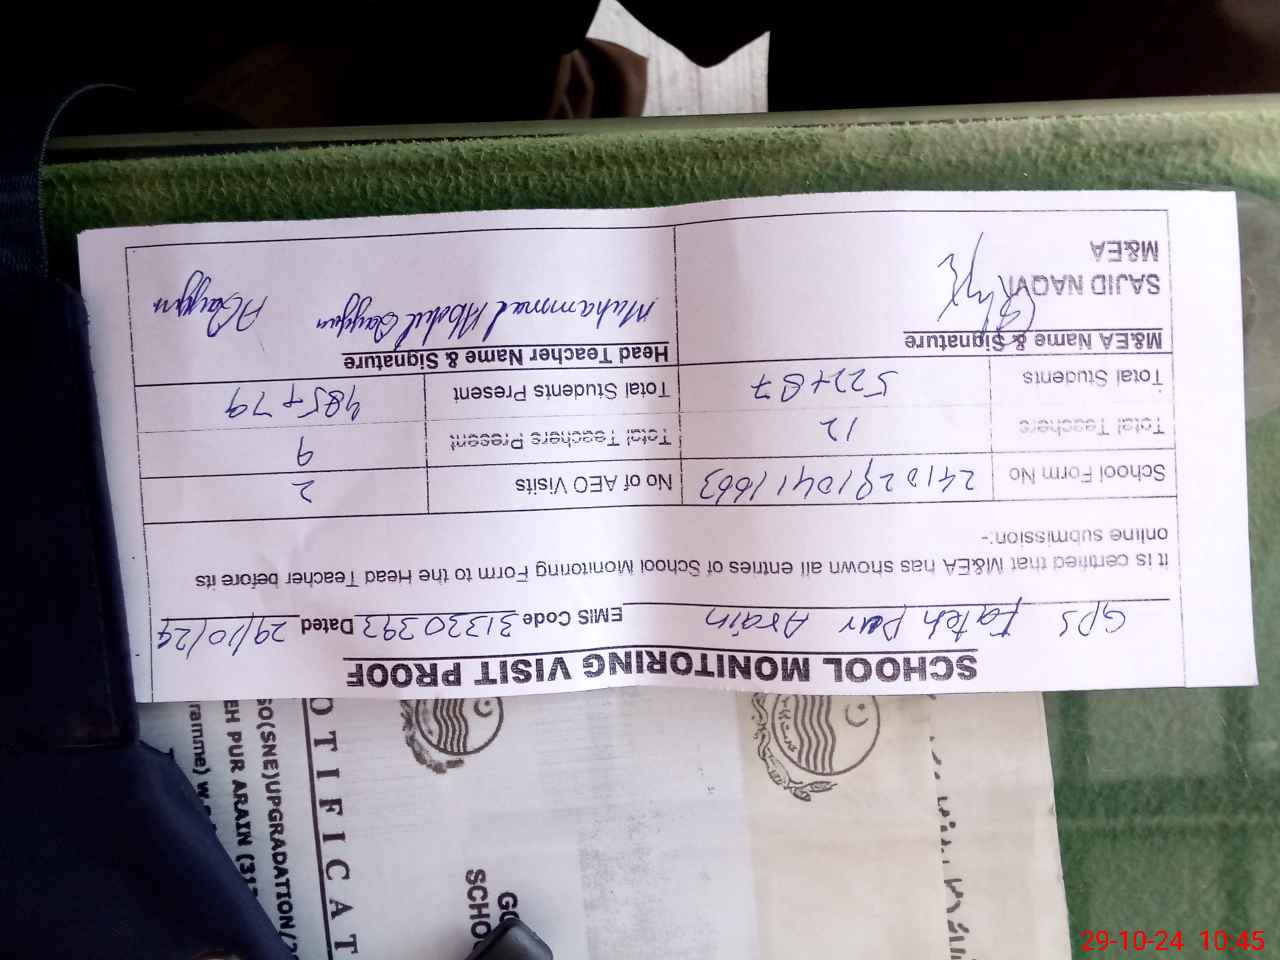 SCHOOL MONITORING VISIT PROOF
GPS Fateh Pur Arain EMIS Code 31330393 Dated 29/10/24
It is certified that M&EA has shown all entries of School Monitoring Form to the Head Teacher before its
online submission:-
School Form No 24102910411663 No of AEO Visits 2
Total Teachers 12 Total Teachers Present 9
Total Students 522+87 Total Students Present 485+79
M&EA Name & Signature Head Teacher Name & Signature
SAJID NAQVI Muhammad Abdul Qayyum AQayyum
M&EA
OTIFICAT
GO(SNE)UPGRADATION/2
EH PUR ARAIN (313
ramme) w
GO
SCHO
29-10-24 10:45